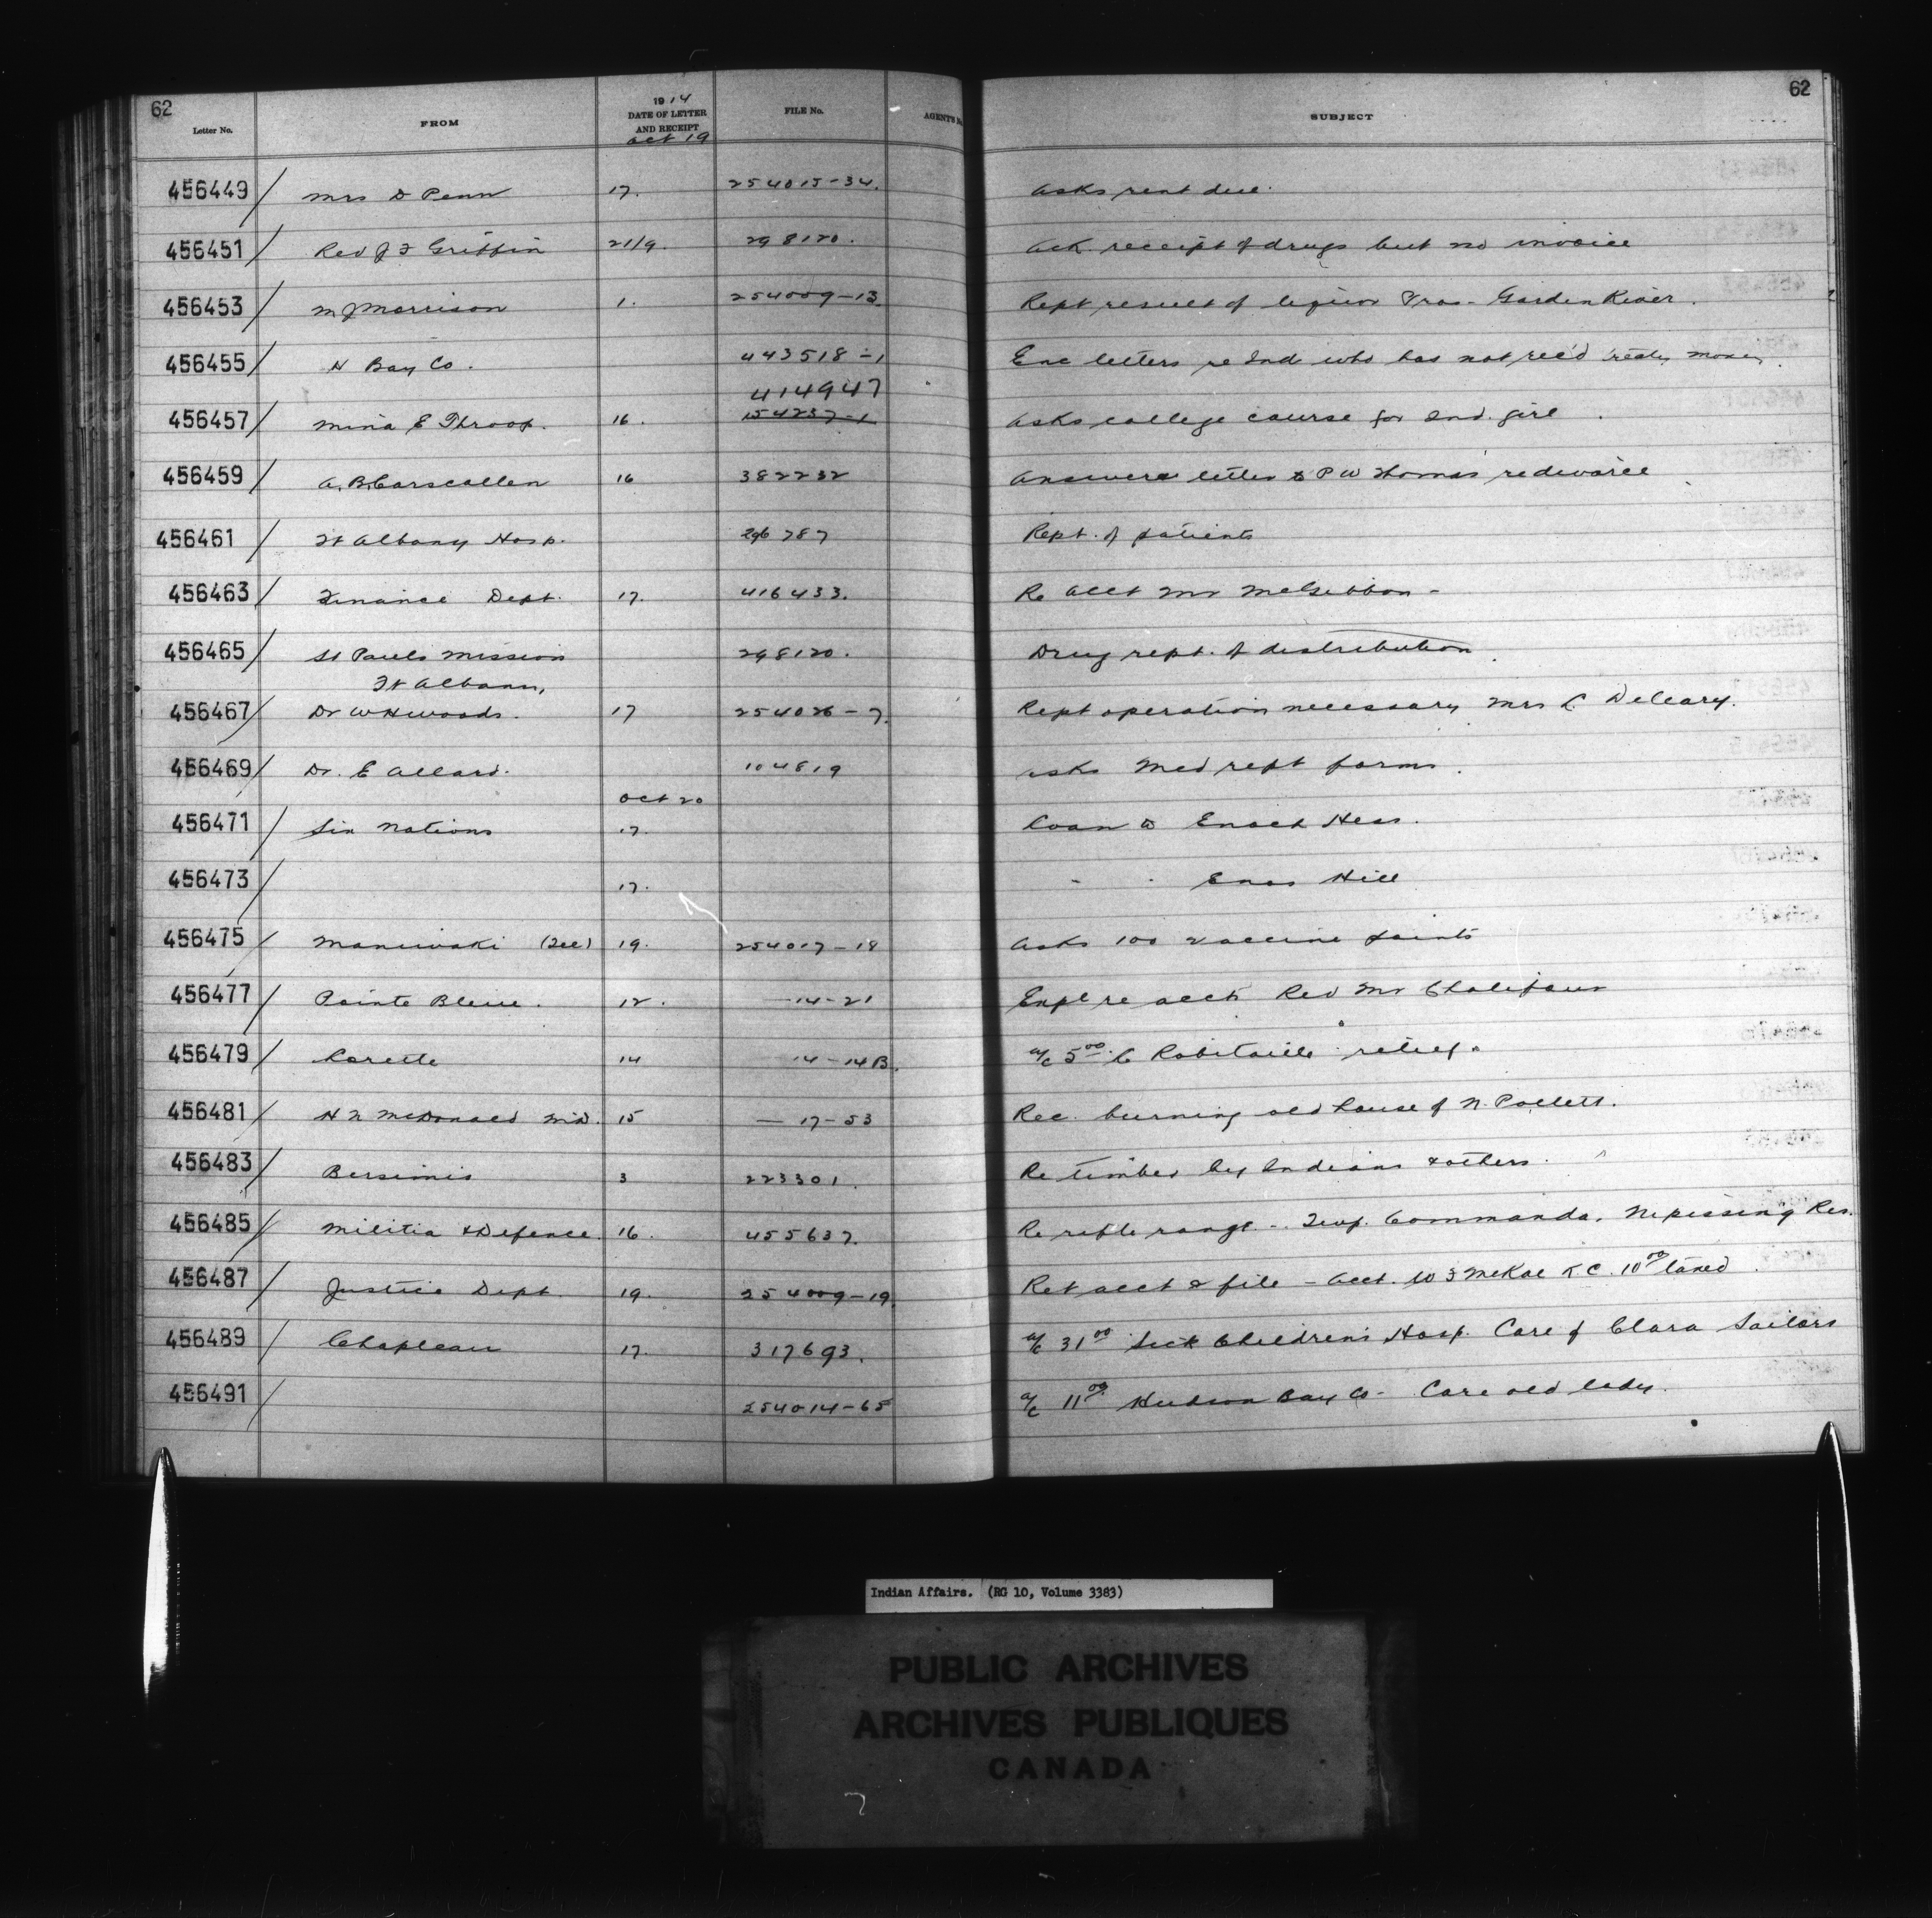 62 62
Letter No. FROM 1914 DATE OF LETTER AND RECEIPT FILE No. AGENT'S SUBJECT
Oct 19
456449 / Mrs D Penn 17. 254015-34. Asks rent due.
456451 / Rev J F Griffin 21/9. 298120. Ack. receipt of drugs but no invoice
456453 / M J Morrison 1. 254009-13. Rept result of liquor Pros - Garden River.
456455 / H Bay Co. 443518-1 Enc letters re Ind who has not rec'd treaty money.
414947
456457 / Mina E Throop. 16. 154237-1 Asks college course for Ind. girl.
456459 / A. B. Carscallen 16 382232 Answers letter to P W Thomas re divorce
456461 / Ft Albany Hosp. 296787 Rept. of patients
456463 / Finance Dept. 17. 416433. Re acct Mr McGibbon -
456465 / St Pauls Mission 298120. Drug rept. of distribution
Ft Albany,
456467 / Dr W H Woods. 17 254026-7. Rept operation necessary Mrs L Deleary.
456469 / Dr. E Allard. 104819 Asks Med rept forms.
Oct 20
456471 / Six Nations 17. Loan to Enoch Hess.
456473 / 17. - - Enos Hill
456475 / Maniwaki (Tel) 19. 254017-18 Asks 100 vaccine points
456477 / Pointe Bleue. 12. -14-21 Expl re acct Rev Mr Chalifour
456479 / Lorette 14 14-14B. a/c 5.00 C Robitaille relief.
456481 / H N McDonald M.D. 15 — 17-53 Rec. burning old house of N. Pollett.
456483 / Bersimis 3 223301. Re timber by Indians & others.
456485 / Militia & Defence. 16. 455637. Re rifle range - Twp. Commanda. Nipissing Res.
456487 / Justice Dept. 19. 254009-19. Ret acct & file - acct. W F McKae K C. 10.00 taxed.
456489 / Chapleau 17. 317693. a/c 31.00 Sick Childrens Hosp. Care of Clara Sailors
456491 / 254014-65 a/c 11.00 Hudson Bay Co - Care old lady.
Indian Affairs. (RG 10, Volume 3383)
PUBLIC ARCHIVES
ARCHIVES PUBLIQUES
CANADA